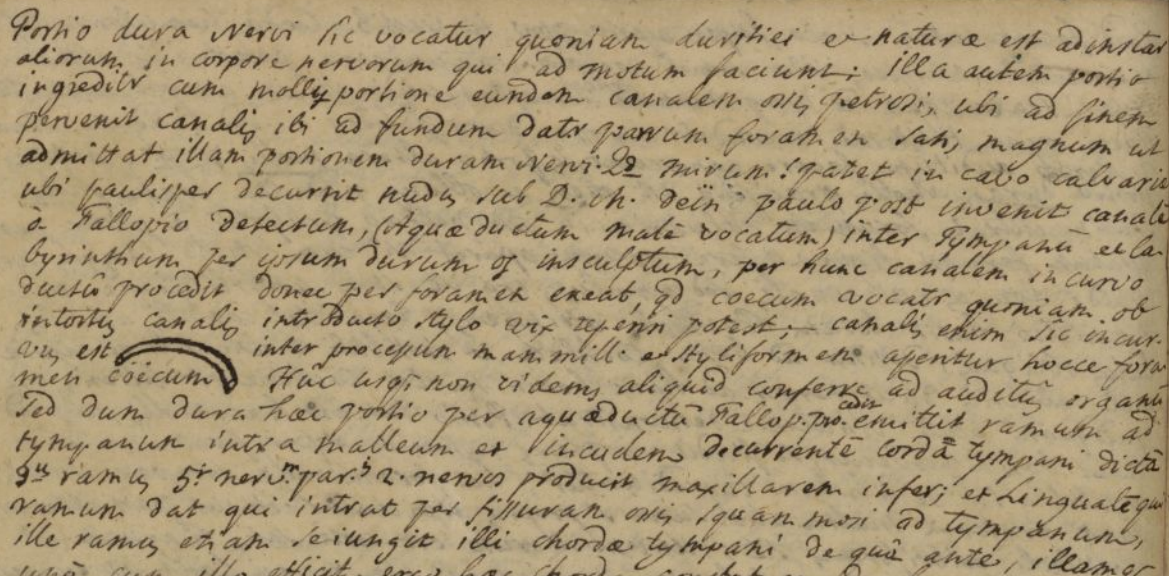 Portio dura Nervi sic vocatur quoniam duritiei et naturæ est ad instar
aliorum in corpore nervorum qui ad motum faciunt; illa autem portio
ingreditr cum molli portione eundem canalem ossis petrosi, ubi ad finem
pervenit canalis ibi ad fundum datr parvum foramen satis magnum ut
admittat illam portionem duram Nervi. mirum! patet in cavo calvariæ
ubi paulisper decurrit nudus sub D. M. dein paulo post invenit canalē
à Fallopio detectum, (Aquæ ductum malè vocatum) inter Tympanū et la-
byrinthum per ipsum durum os insculptum, per hunc canalem incurvo
ductū procedit donec per foramen exeat, qd coecum vocatr quoniam ob
intortis canalis introducto stylo vix reperiri potest; canalis enim sic incur-
vus est inter processum mammill. et styliformem aperitur hocce fora
men coecum Hūc usqs non videmus aliquid conferre ad auditūs organū
Sed dum dura hæc portio per aquæductū Fallop. pro. cedit emittit ramum ad
tympanum intra malleum et incudem decurrentē cordā tympani dictā
3us ramus 5i nerv.m par.s 2. nervos producit maxillarem infer; et Lingualē qui
ramum dat qui intrat per fissuram ossis squammosi ad tympanum,
ille ramus etiam se iungit illi chordæ tympani de quâ ante,
unâ cum illo efficit, ergo hæc